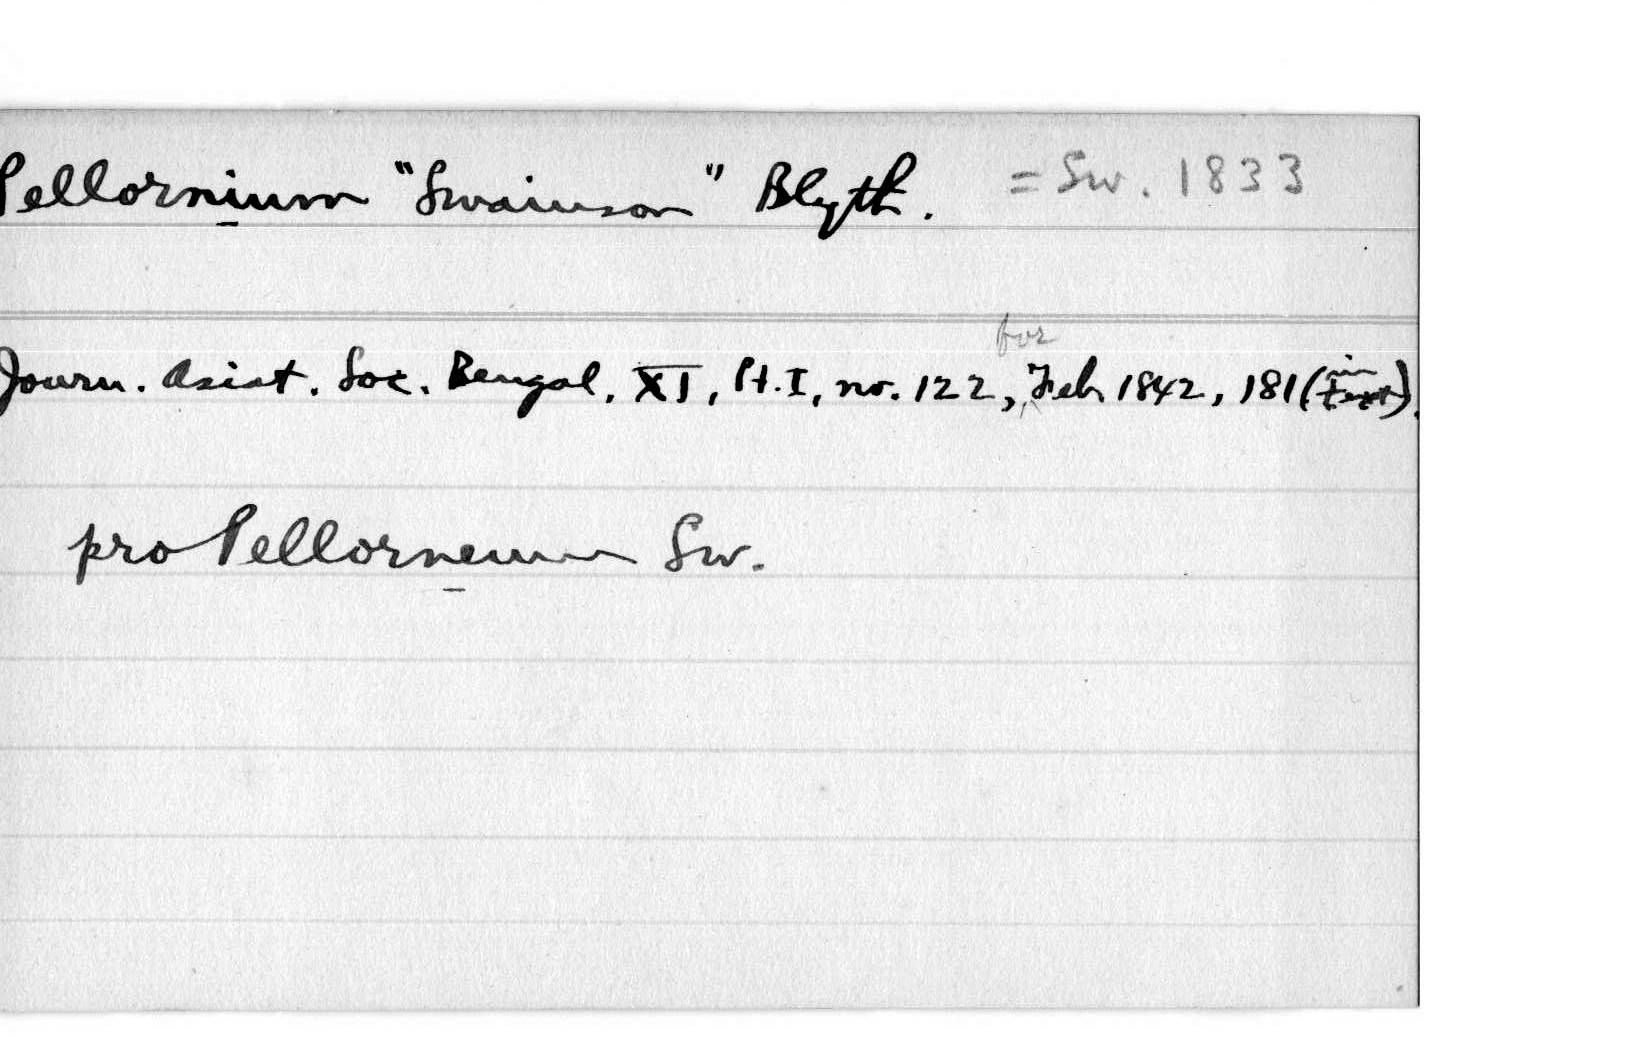 Pellornium "Swainson" Blyth. = Sw. 1833
Journ. Asiat. Soc. Bengal, XI, Pt. I, no. 122, for Feb 1842, 181 (in text).
pro Pellorneum Sw.